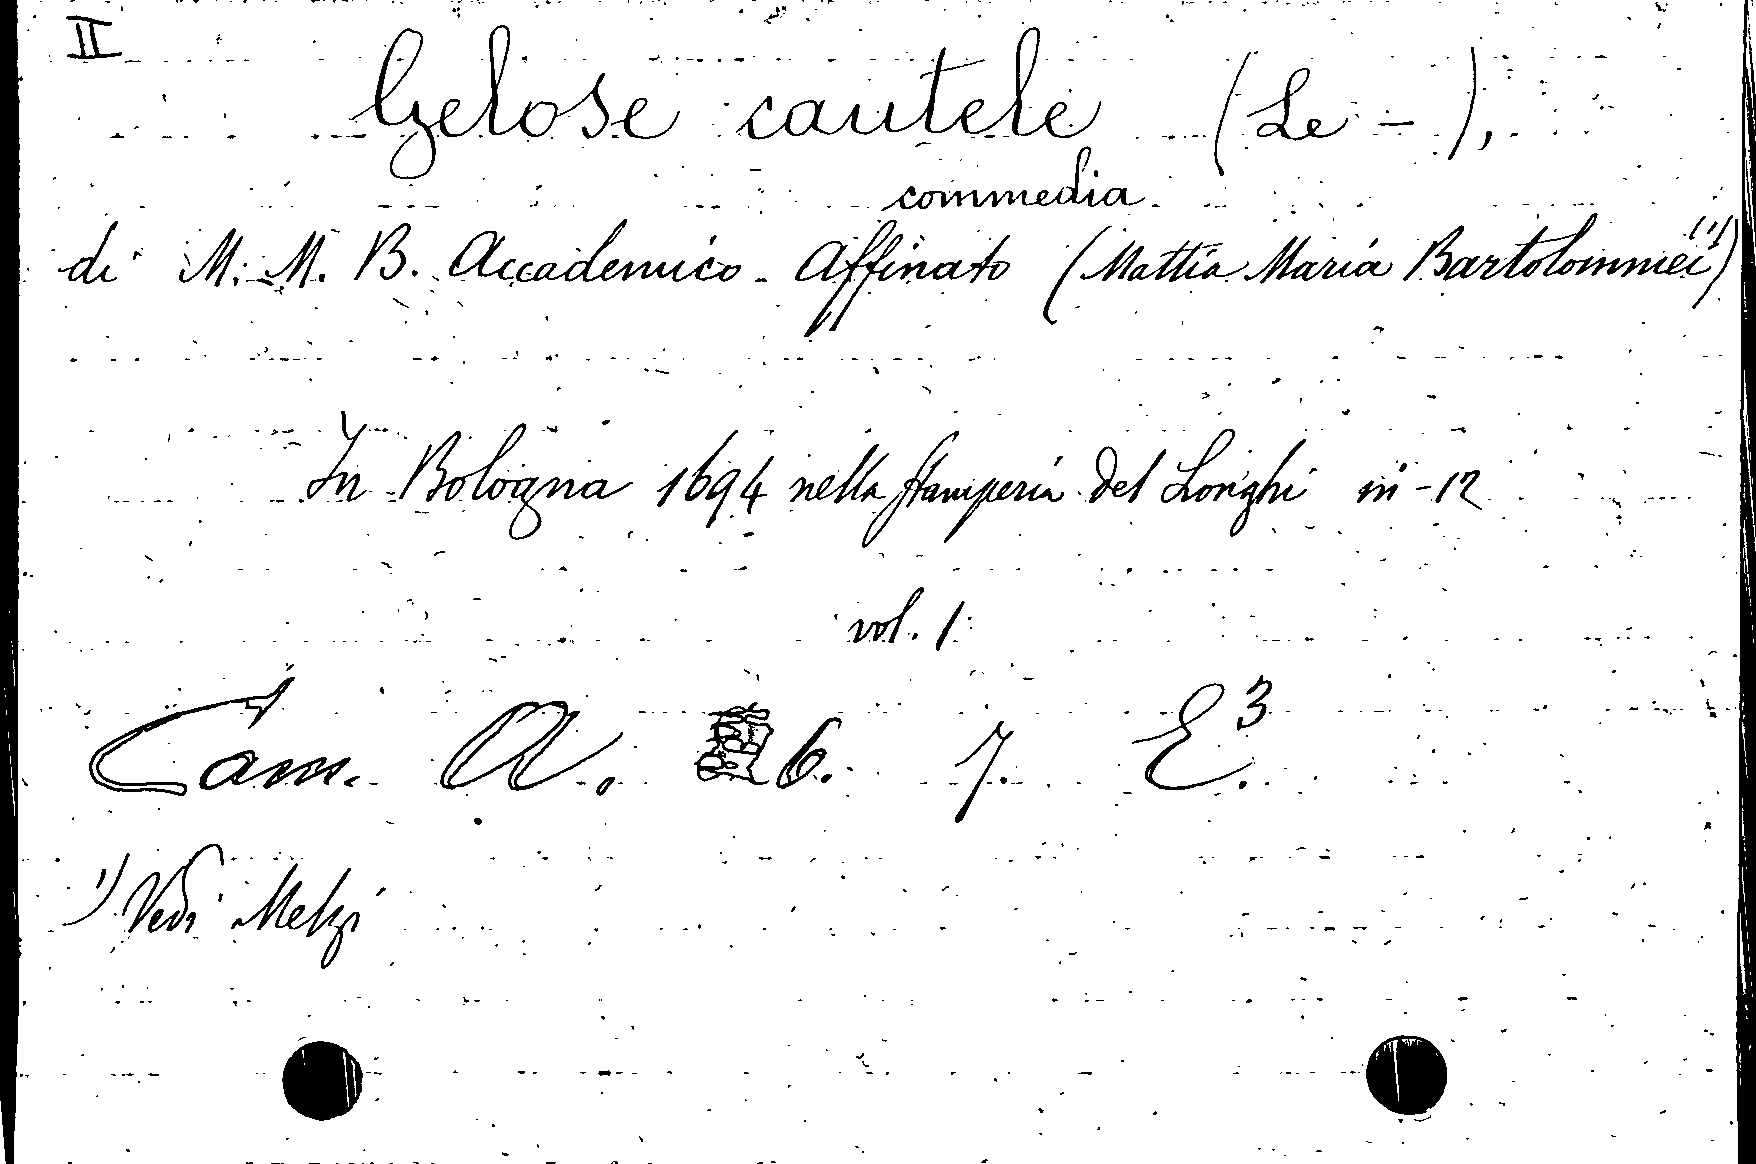 II
Gelose cautele (Le -),
commedia
di M. M. B. Accademico Affinato (Mattia Maria Bartolommei ¹⁾)
In Bologna 1694 nella stamperia del Longhi in-12
vol. 1
Cam. A. 6. 7. E³.
¹⁾ Vedi Melzi